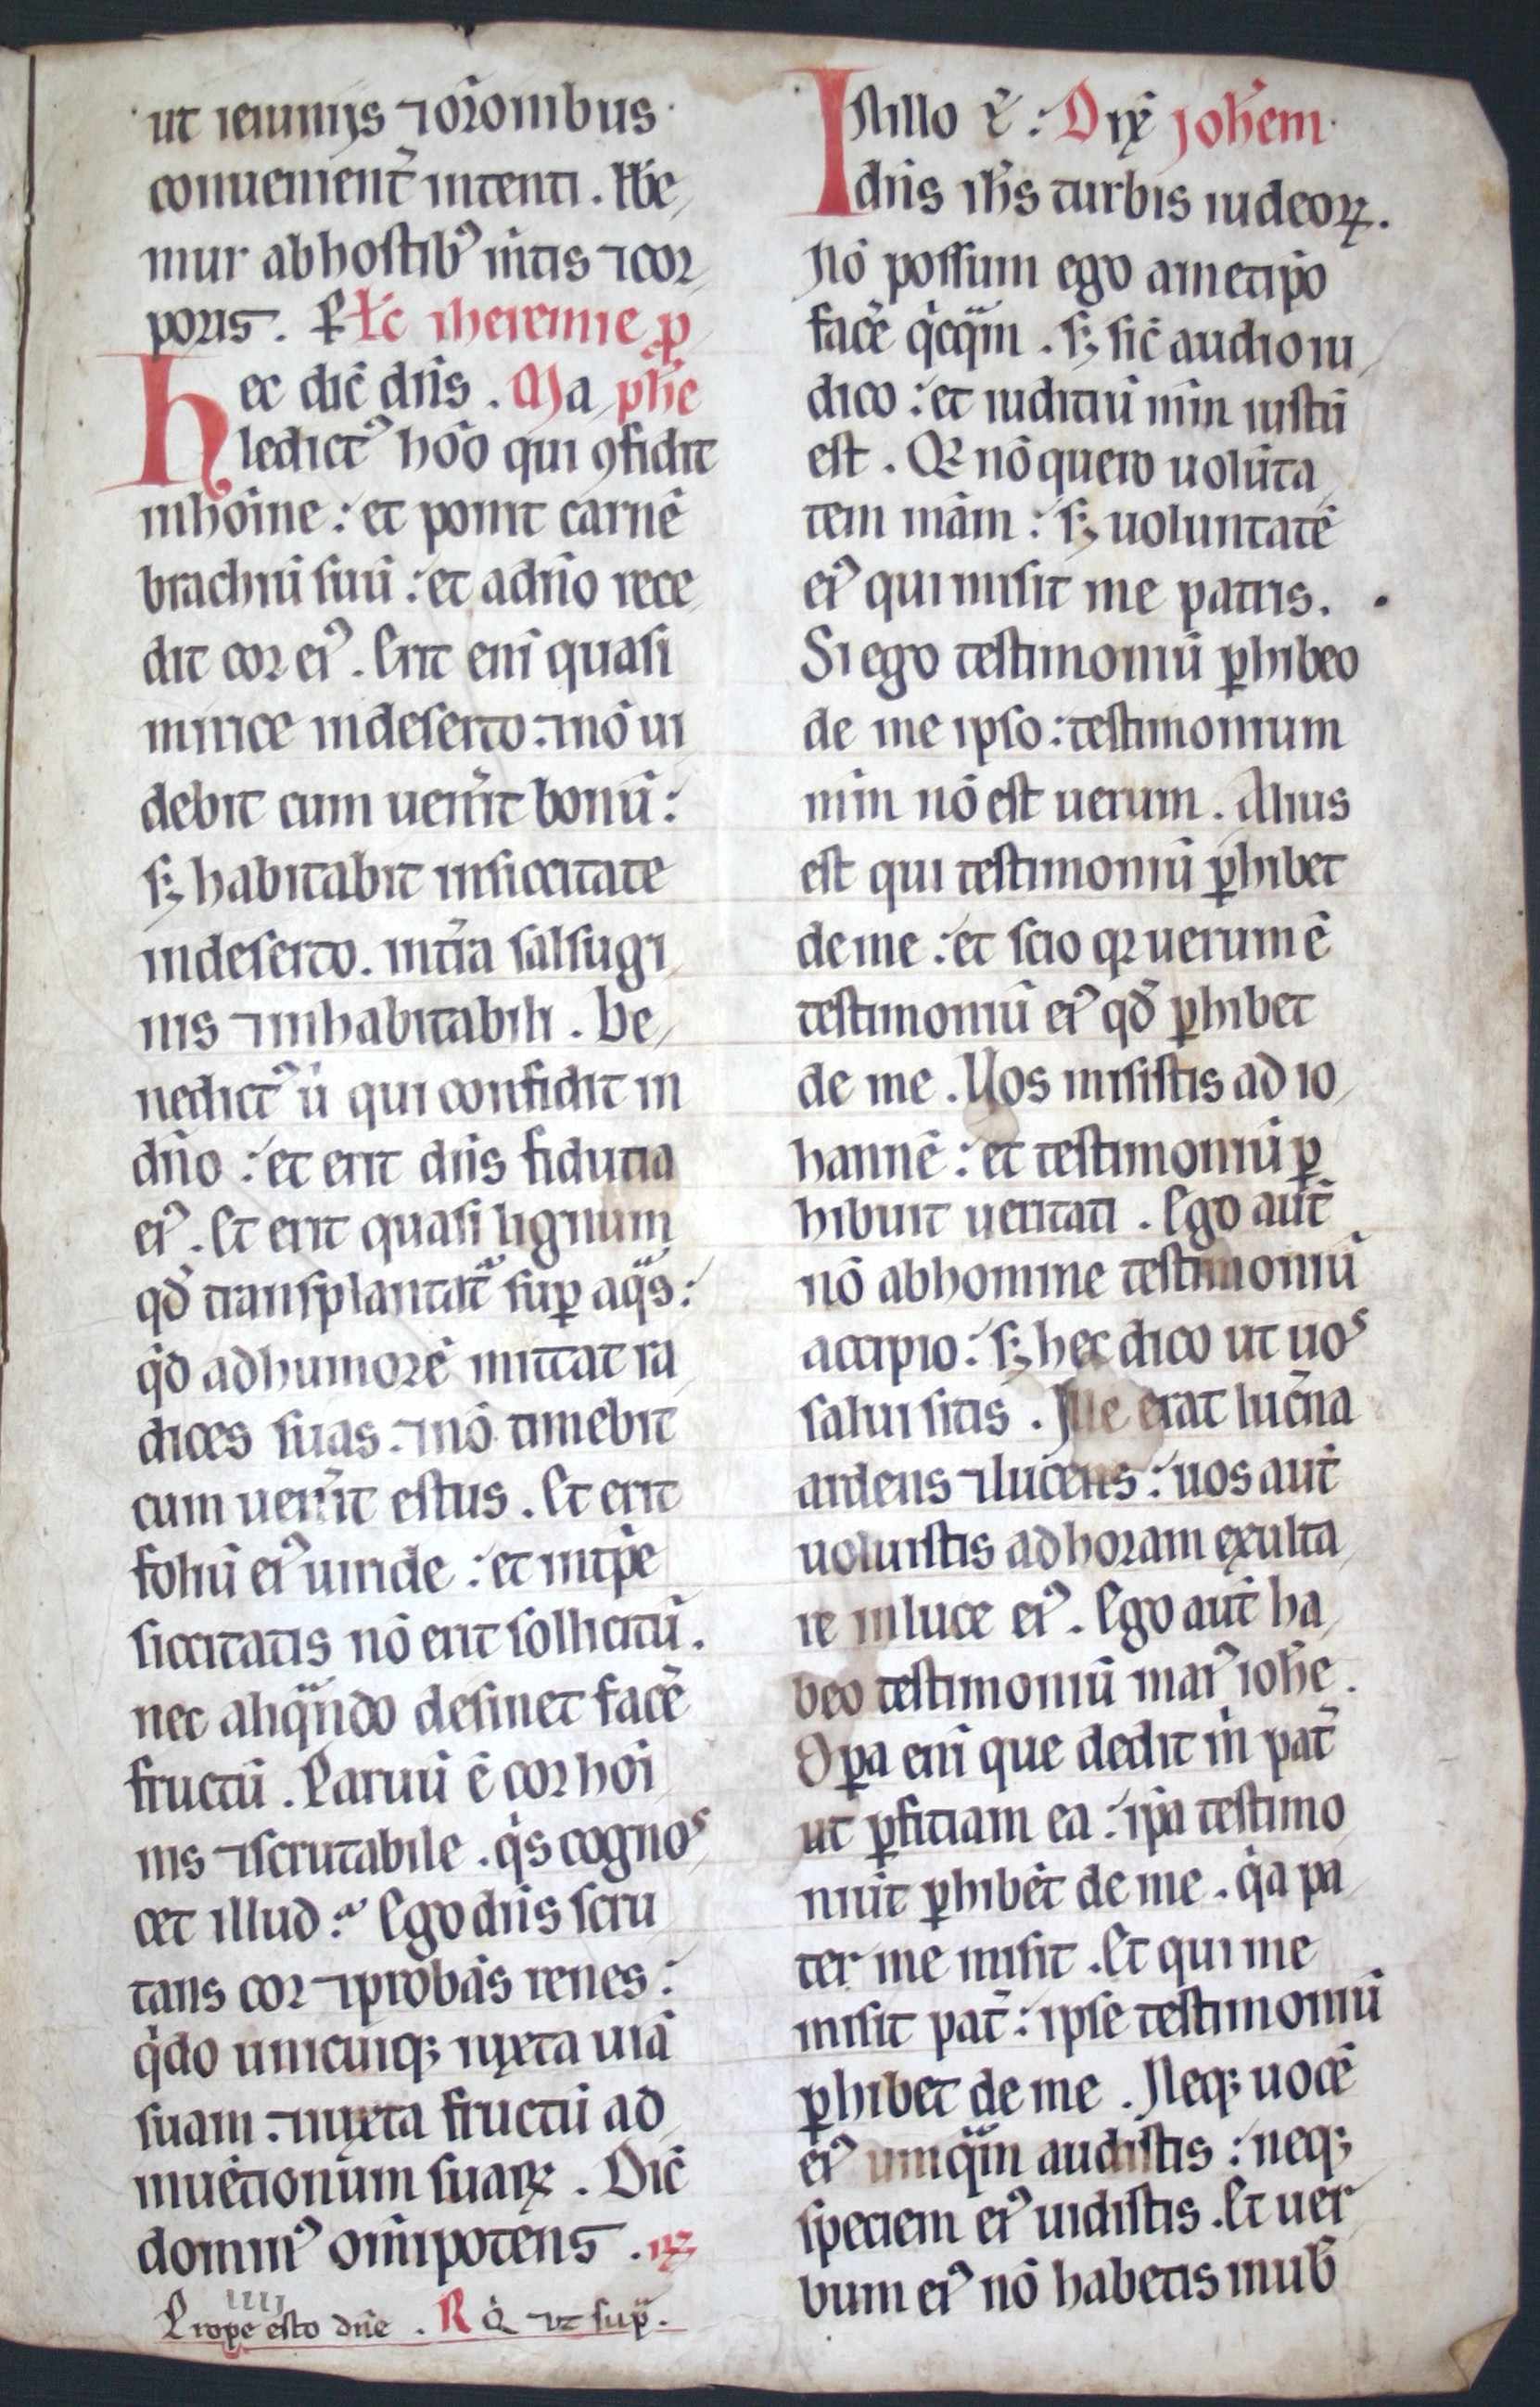 ut ieiuniis ⁊ or̄onibus
conuenient̄ intenti. libe
mur ab hostib᾽ m̄tis ⁊ cor
poris. P̲ Lc̄ iheremie p̱
Hec dic̄ dn̄s. Ma phē
ledict᾽ hō̄o qui ꝯfidit
in hoı̄ne : et ponit carnē
brachiū suū : et a dn̄o rece
dit cor ei᾽. Erit eni̅ quasi
mirice in deserto : ⁊ nō ui
debit cum uen̄it bonū :
sꝫ habitabit in siccitate
in deserto. in tr̄a salsugi
nis ⁊ inhabitabili. Be
nedict᾽ ū qui confidit in
dn̄o : et erit dn̄s fidutia
ei᾽. Et erit quasi lignum
qđ transplantat̄ sup̱ aq̄s :
qđ ad humorē mittat ra
dices suas : ⁊ nō timebit
cum uen̄it estus. Et erit
foliū ei᾽ uiride : et in tp̄e
siccitatis nō erit sollicitū.
nec aliqn̄do desinet facē
fructū. Prauū ē cor hoı̄
nis ⁊ iscrutabile. q̇s cognos
cet illud? Ego dn̄s scru
tans cor ⁊ probās renes :
q̇ do unicuiqꝫ iuxta uiā
suam : ⁊ iuxta fructū ad
inuētionum suaꝝ. Dic̄
domin᾽ om̄ipotens.
Prope esto dn̄e. R Q ut sup̄.
In illo t̄ : Dix̄ Joh̄em
dn̄s ih̄s turbis iudeoꝝ.
Nō possum ego a metip̄o
facē q̇cq̄m. sꝫ sic̄ audio iu
dico : et iuditiū m̄m iustū
est. Qꝛ nō quero uolūta
tem mām : sꝫ uoluntatē
ei᾽ qui misit me patris.
Si ego testimoniū ꝑhibeo
de me ipso : testimonium
m̄m nō est uerum. Alius
est qui testimoniū ꝑhibet
de me : et scio qꝛ uerum ē
testimoniū ei᾽ qđ ꝑhibet
de me. Uos misistis ad io
hannē : et testimoniū ꝑ
hibuit ueritati. Ego aut̄
nō ab homine testimoniū
accipio : sꝫ hec dico ut uos
salui sitis. Ille erat luc̄na
ardens ⁊ lucens : uos aut̄
uoluistis ad horam exulta
re in luce ei᾽. Ego aut̄ ha
beo testimoniū mai᾽ ioh̄e.
Oꝑa eni̅ que dedit m̄ pat̄
ut ꝑfitiam ea : ip̄a testimo
niū̄ ꝑhibēt de me. q̇a pa
ter me misit. Et qui me
misit pat̄ : ipse testimoniū
ꝑhibet de me. Neqꝫ uocē
ei᾽ umq̄m audistis : neqꝫ
speciem ei᾽ uidistis. Et uer
bum ei᾽ nō habetis in uob̄